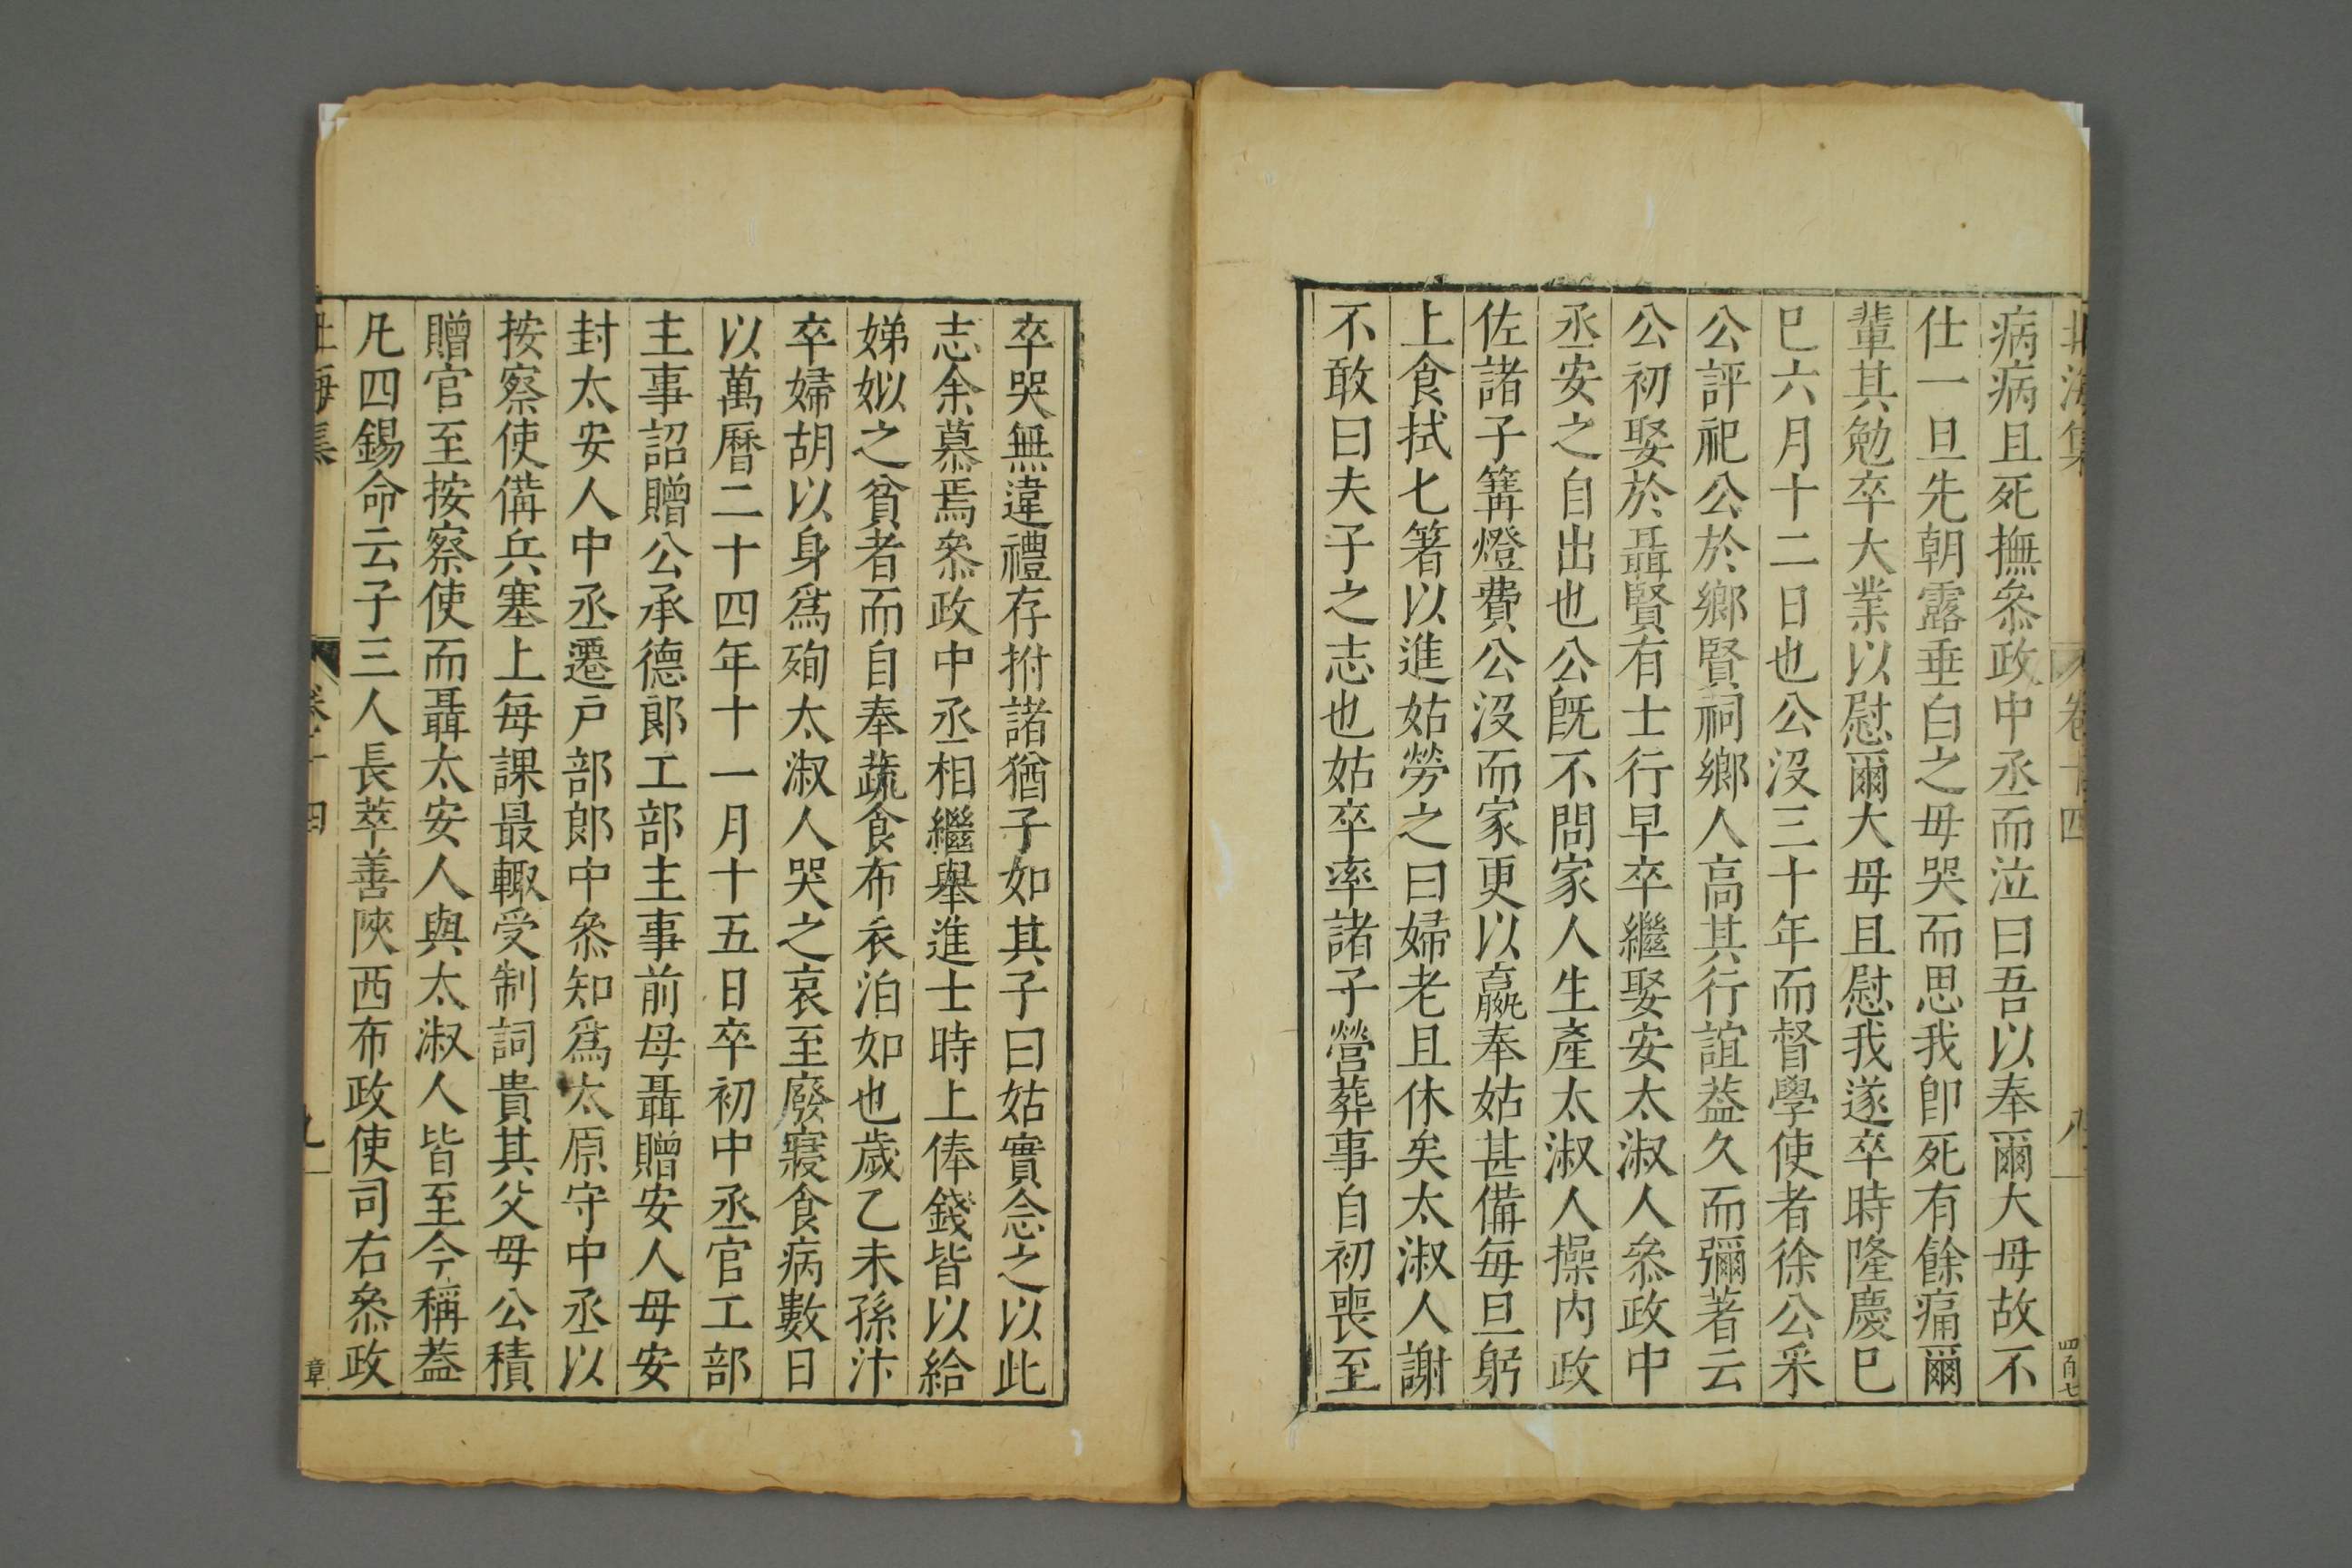 北海集 卷十四 八 四百七
病病且死撫叅政中丞而泣曰吾以奉爾大母故不
仕一旦先朝露垂白之母哭而思我卽死有餘痛爾
輩其勉卒大業以慰爾大母且慰我遂卒時隆慶巳
巳六月十二日也公沒三十年而督學使者徐公采
公評祀公於鄉賢祠鄉人高其行誼葢久而彌著云
公初娶於聶賢有士行早卒繼娶安太淑人叅政中
丞安之自出也公旣不問家人生產太淑人操內政
佐諸子篝燈費公沒而家更以羸奉姑甚備每旦躬
上食拭匕箸以進姑勞之曰婦老且休矣太淑人謝
不敢曰夫子之志也姑卒率諸子營葬事自初喪至
卒哭無違禮存拊諸猶子如其子曰姑實念之以此
志余慕焉叅政中丞相繼舉進士時上俸錢皆以給
娣姒之貧者而自奉蔬食布衣泊如也歲乙未孫汴
卒婦胡以身爲殉太淑人哭之哀至廢寢食病數日
以萬曆二十四年十一月十五日卒初中丞官工部
主事詔贈公承德郎工部主事前母聶贈安人母安
封太安人中丞遷戶部郎中叅知爲太原守中丞以
按察使備兵塞上每課最輙受制詞貴其父母公積
贈官至按察使而聶太安人與太淑人皆至今稱葢
凡四錫命云子三人長萃善陝西布政使司右叅政
北海集 卷十四 九 章